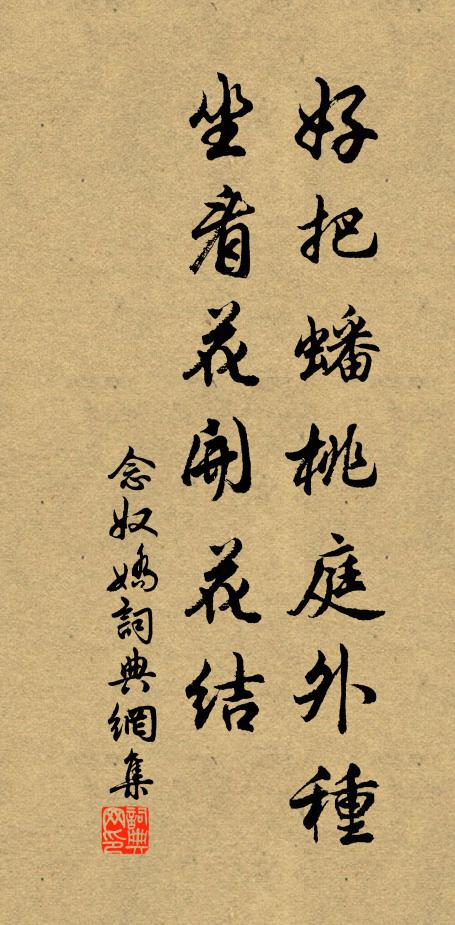 好把蟠桃庭外種
坐看花開花結
念奴嬌詞典網集
詞典网印